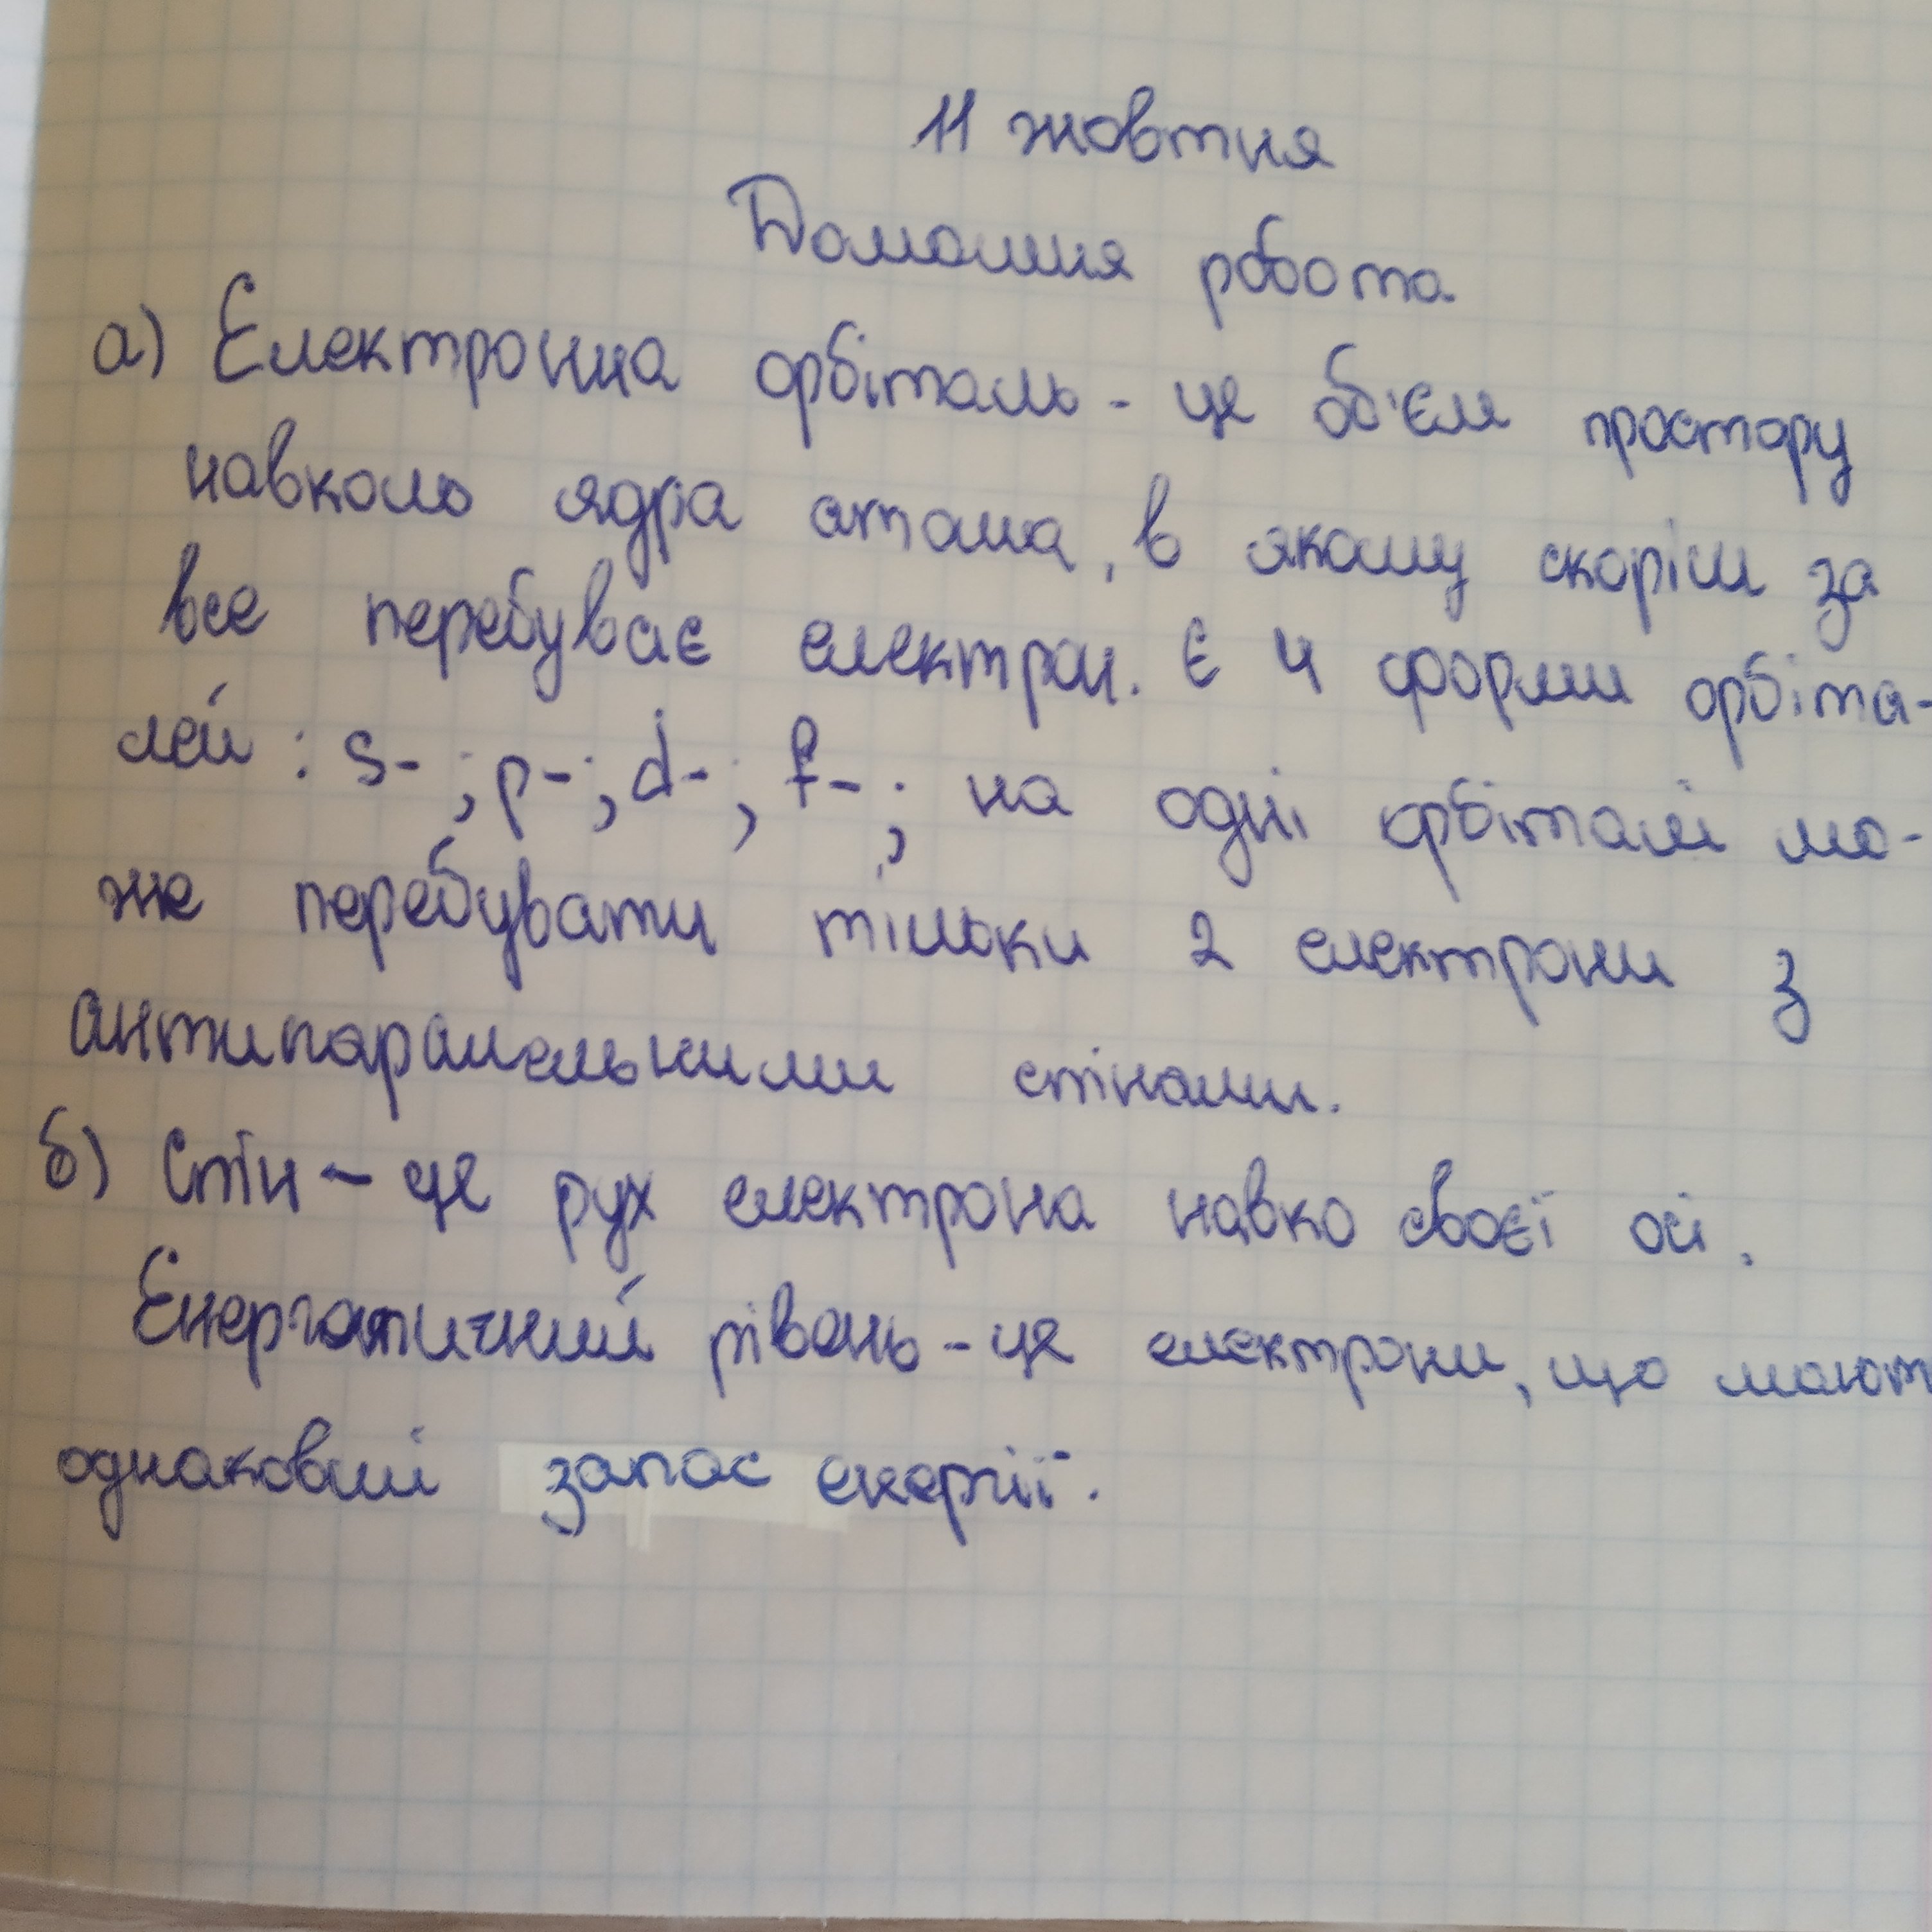 11 жовтня
Домашня робота
а) Електронна орбіталь - це об'єм простору
навколо ядра атома, в якому скоріш за
все перебуває електрон. Є 4 форми орбіта-
лей: s- ; p- ; d- ; f- ; на одні орбіталі мо-
же перебувати тільки 2 електрони з
антипаралельними спінами.
б) Спін - це рух електрона навко своєї осі.
Енергетичний рівень - це електрони, що мают
однаковий запас енергії.